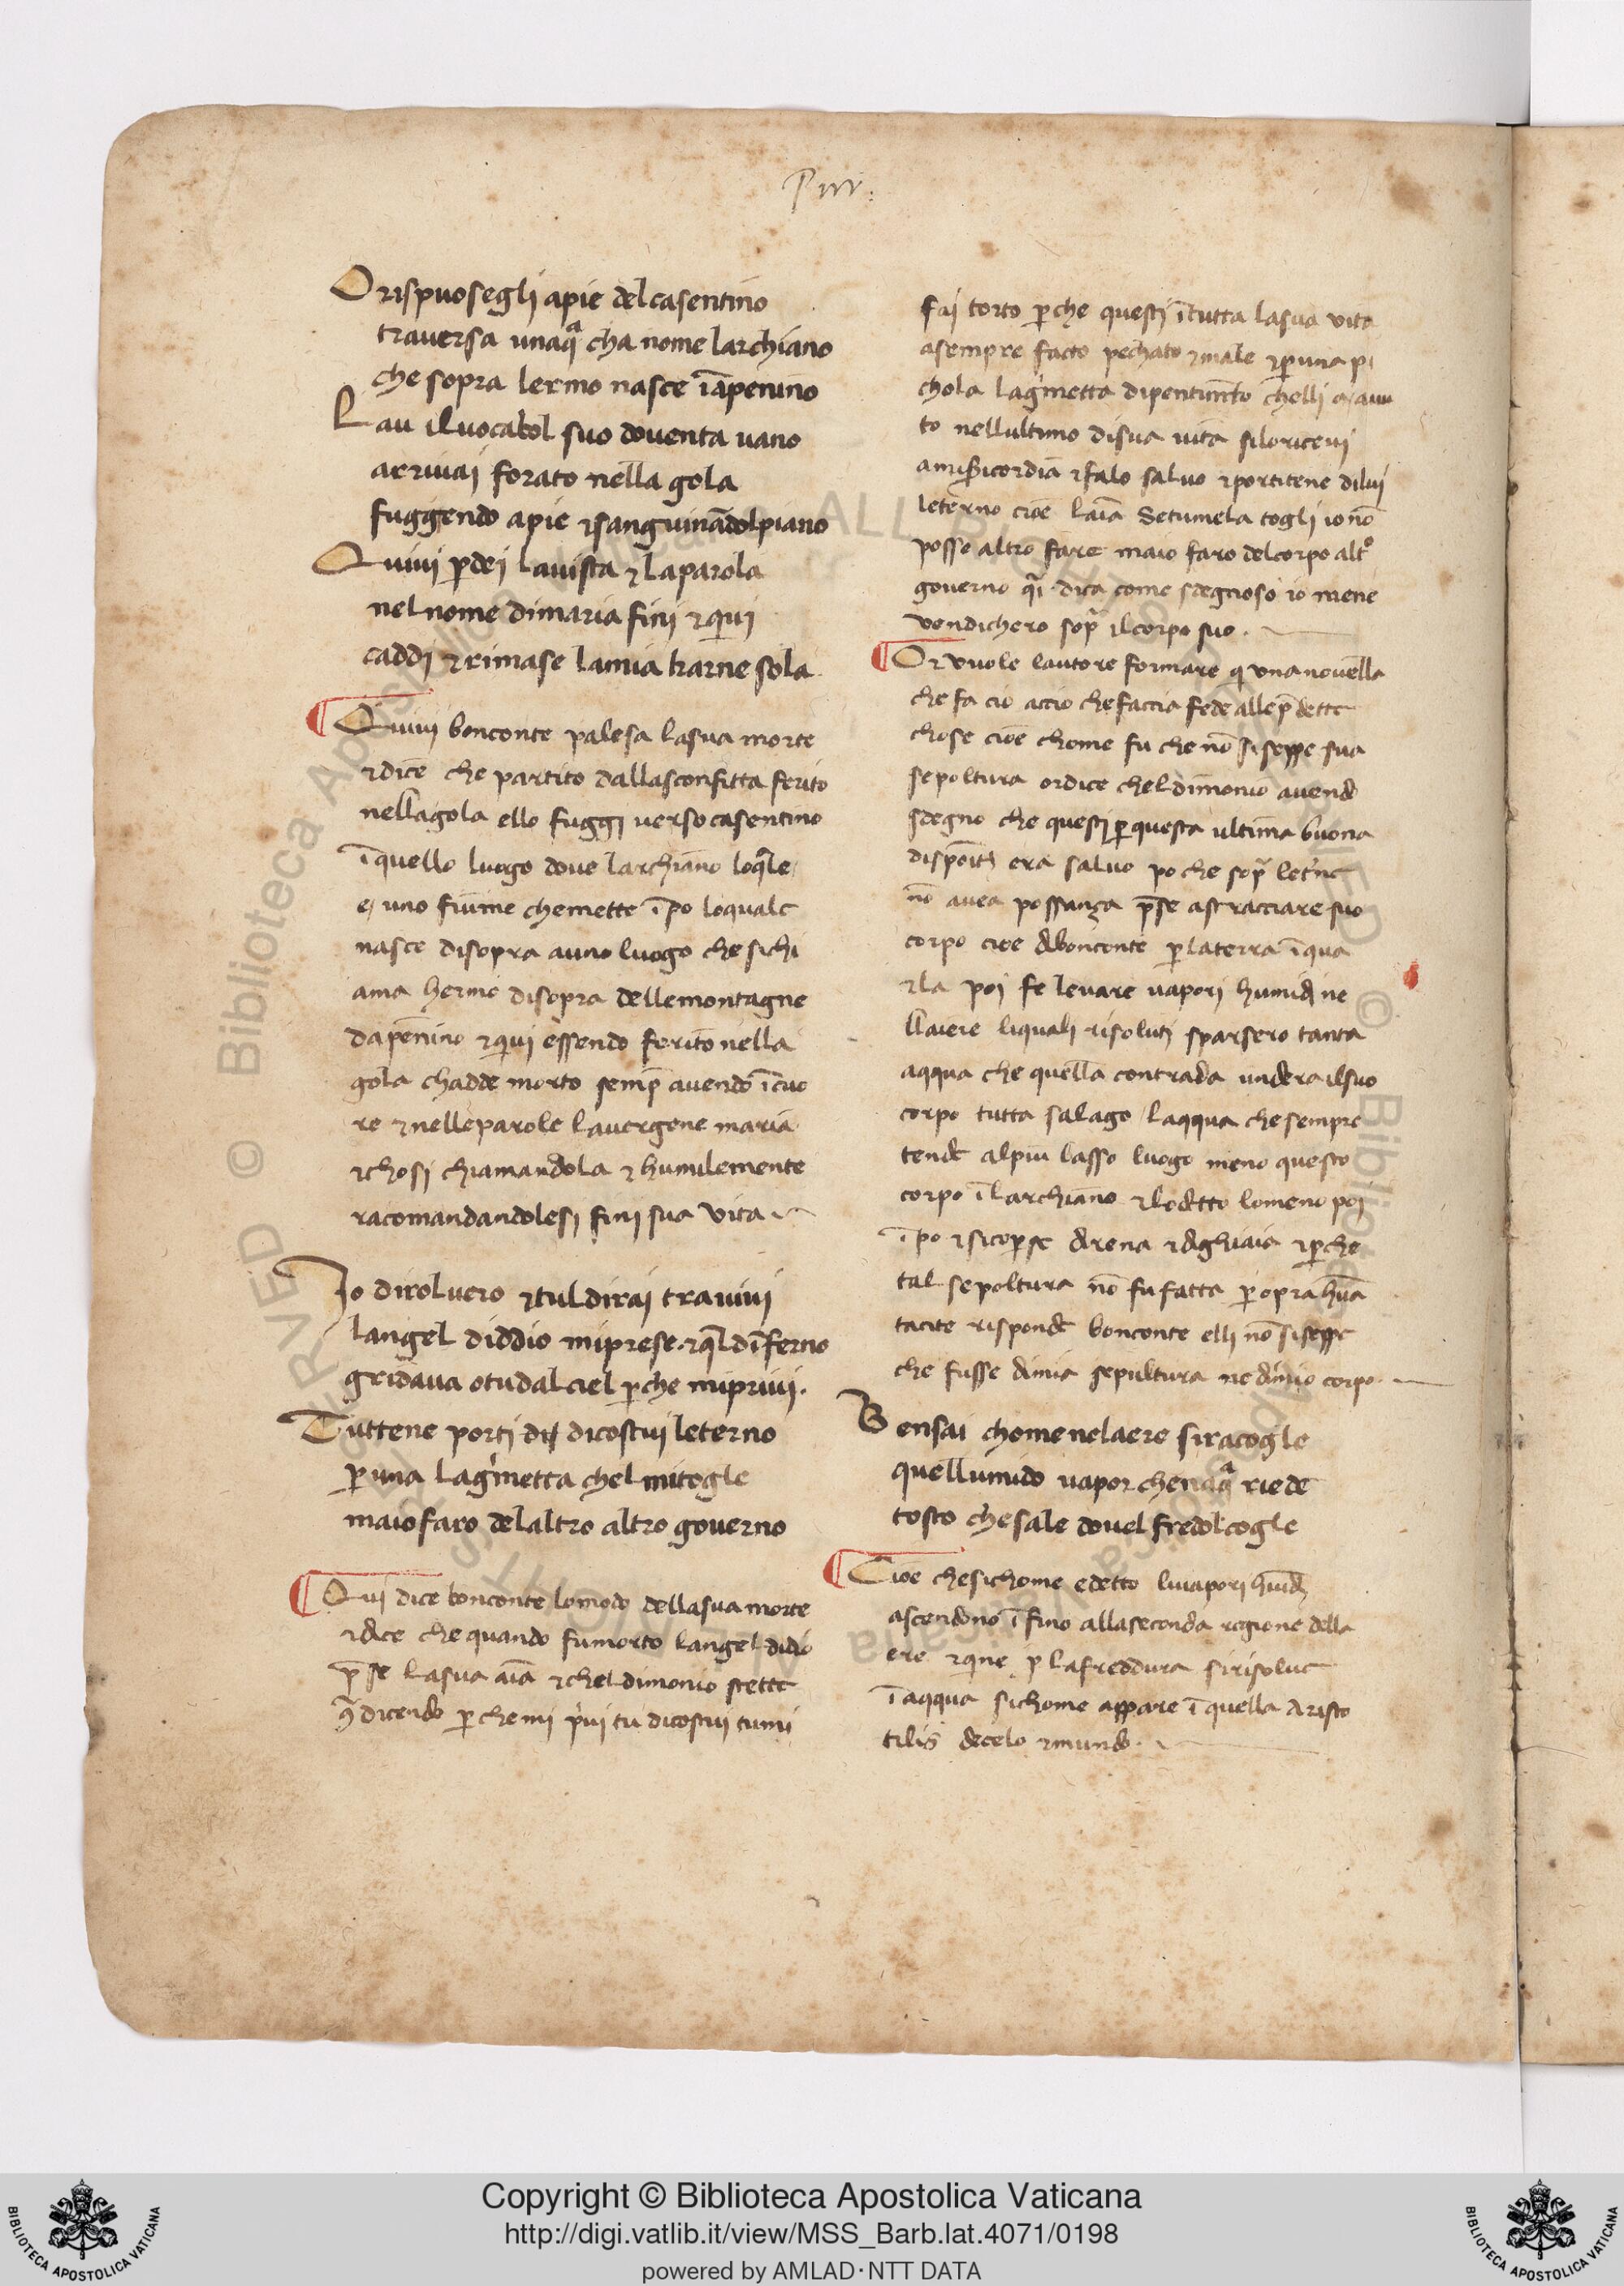 Pur.
O rispuosegli apie del casentino
traversa unaqᵃ cha nome larchiano
che sopra lermo nasce ĩãpenino
Lau il uocabol suo doventa uano
arrivai forato nella gola
fuggendo apie ⁊sanguinãdolpiano
Quivi ꝑdei lauista ⁊ laparola
nel nome dimaria finj ⁊qui
caddj ⁊rimase lamia karne sola
¶ Quivj bonconte palesa lasua morte
⁊dice che partito dallasconfitta ferito
nellagola ello fuggi uerso casentino
ĩquello luogo doue larchiano loqᵃle
e uno fiume chemette ĩpo loquale
nasce disopra auno luogo che sichi
ama hermo disopra dellemontagne
dapenino ⁊quj essendo ferito nella
gola chadde morto semp̃ auendo ĩcuo
re ⁊nelleparole lauergene maria
⁊chosj chiamandola ⁊ humilemente
racomandandolesj finj sua vita
Io dirolvero ⁊tuldirai travivi
langel diddio miprese ⁊ql dĩferno
gridaua otudalciel ꝑche miprivi.
Tuttene portj dicostui leterno
ꝑ una lagˡmetta chel mitogle
maiofaro delaltro altro governo
¶ Qui dice bonconte lomodo dellasua morte
⁊dice che quando fumorto langel didio
p̃se lasua aĩa ⁊chel dimonio stette
dicendo ꝑche mi pⁱvi tu dicostui tumi
faj torto ꝑche questj ĩtutta lasua vita
asempre facto pechato ⁊male ⁊ꝑuna pi
chola lagˡmetta dipentimẽto chelli a auu
to nellultimo disua uita siloricevi
amisericordia ⁊falo saluo ⁊portitene diluj
leterno cioe laĩa Setumela togli io nõ
posso altro fare maio faro delcorpo altᵒ
governo qᵃi dica come sdegnoso io mene
vendichero sopᵃ ilcorpo suo.
¶ Or vuole lautore formare q̃ una novella
che fa cio accio chefaccia fede allep̃dette
chose cioe chome fu che nõ siseppe sua
sepoltura ordice chel dimonio auendo
sdegno che questj ꝑquesta ultima buona
era saluo po che sopᵃ leterne
nõ auea possanza p̃se astracciare suo
corpo cioe dbonconte ꝑlaterra ĩqua
⁊la poj fe levare vaporj humidi ne
llaiere liqualj risolutj sparsero tanta
aqqua che quella contrada undera ilsuo
corpo tutta salago laqqua che sempre
tende alpiu basso luogo meno questo
corpo ĩlarchiano ⁊lodetto lomeno poj
ĩpo ⁊sicoꝑse direna ⁊dighiaia ⁊ꝑche
tal sepoltura nõ fufatta ꝑ opra hũa
tacite risponde bonconte elli nõ siseppe
che fusse dimia sepultura ne dimio corpo
Bensai chomenelaere siracogle
quellumido uapor chenaqᵃ riede
tosto chesale dovel fredolcogle
¶ Cioe chesichome edetto liuiaporj humidj
ascendono ĩfino allaseconda regione della
ere ⁊quine ꝑ lafreddura sirisolue
ĩaqqua sichome appare ĩquella Aristo
tilis decelo ⁊mundo.
Copyright © Biblioteca Apostolica Vaticana
http://digi.vatlib.it/view/MSS_Barb.lat.4071/0198
powered by AMLAD·NTT DATA
BIBLIOTECA APOSTOLICA VATICANA
BIBLIOTECA APOSTOLICA VATICANA